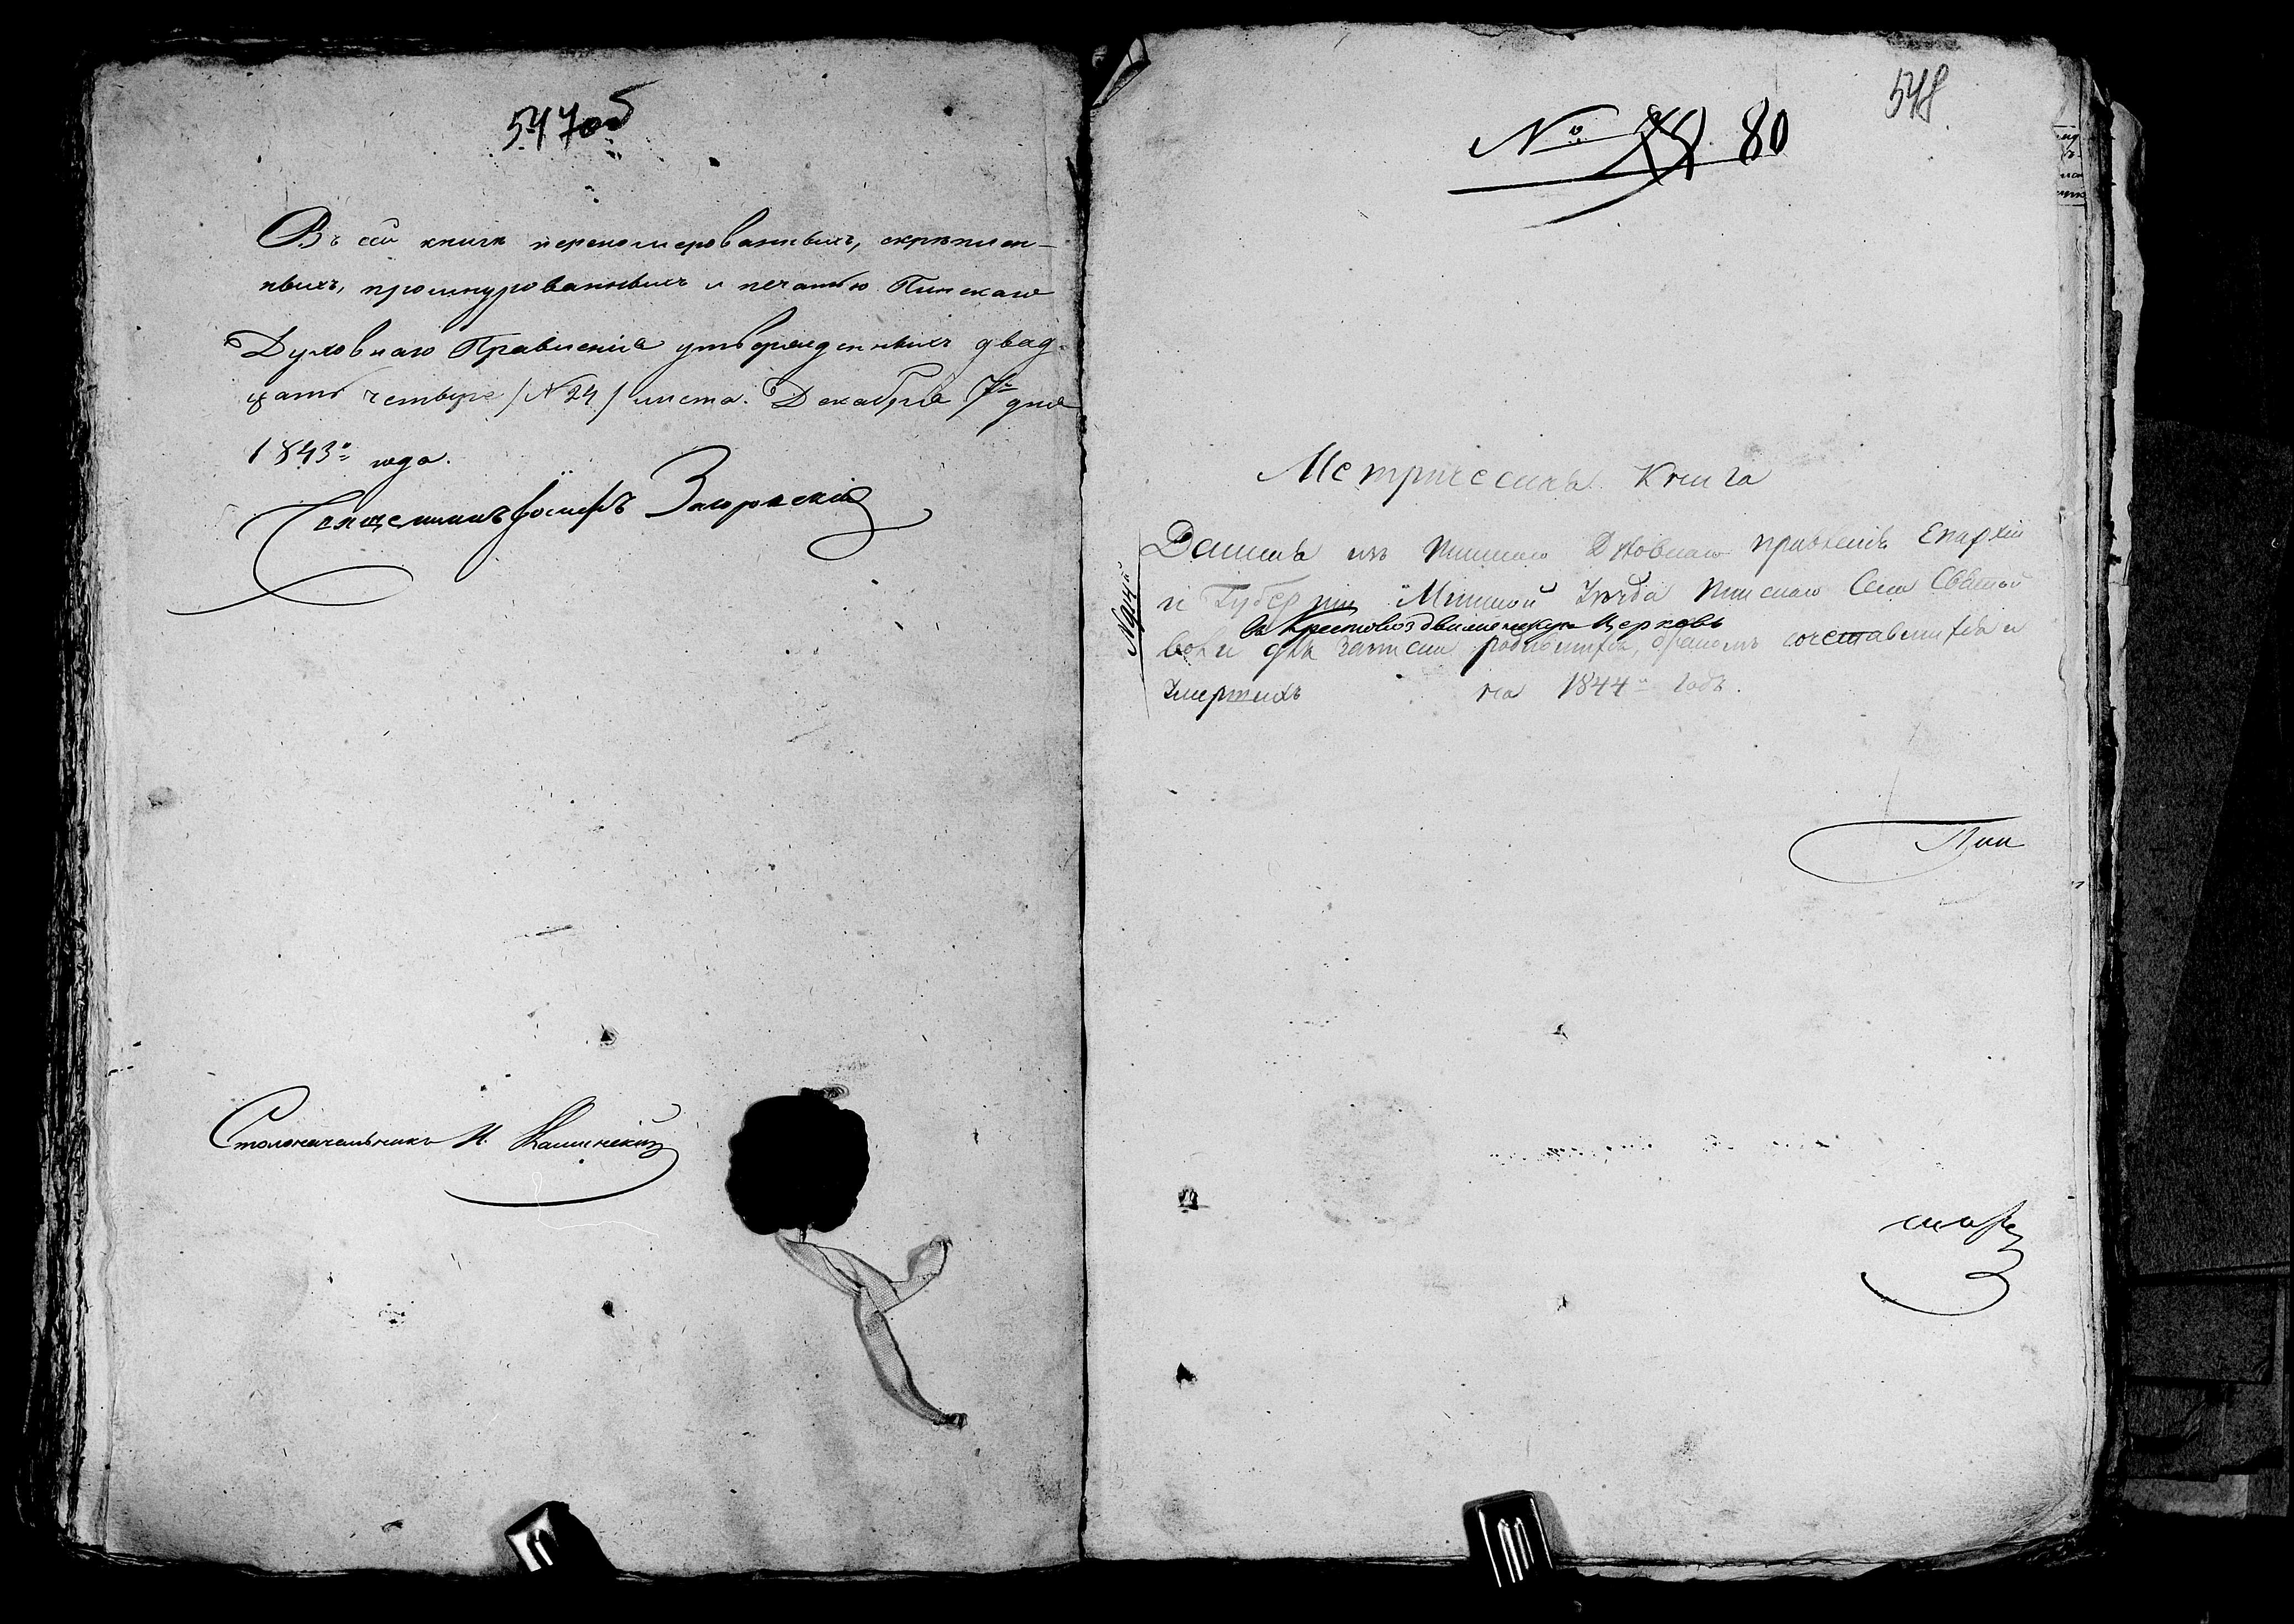 547об
Въ сей книгѣ переномерованныхъ, скрѣплен-
ныхъ, прошнурованныхъ и печатью Пинскаго
Духовнаго Правленія утвержденныхъ двад-
цать четыре /№ 24/ листа. Декабря 7го дня
1843го года.
Священникъ Іосифъ Загорскій
Столоначальникъ И. Калинскій
548
№ 80
Метрическая Книга
Данная изъ Пинскаго Духовнаго правленія Епархіи
и Губерніи Минской Уѣзда Пинскаго Села Святой
въ Крестовоздвиженскую Церковь
воли для записи родившихся, бракомъ сочетавшихся и
Умершихъ на 1844й годъ.
Пин